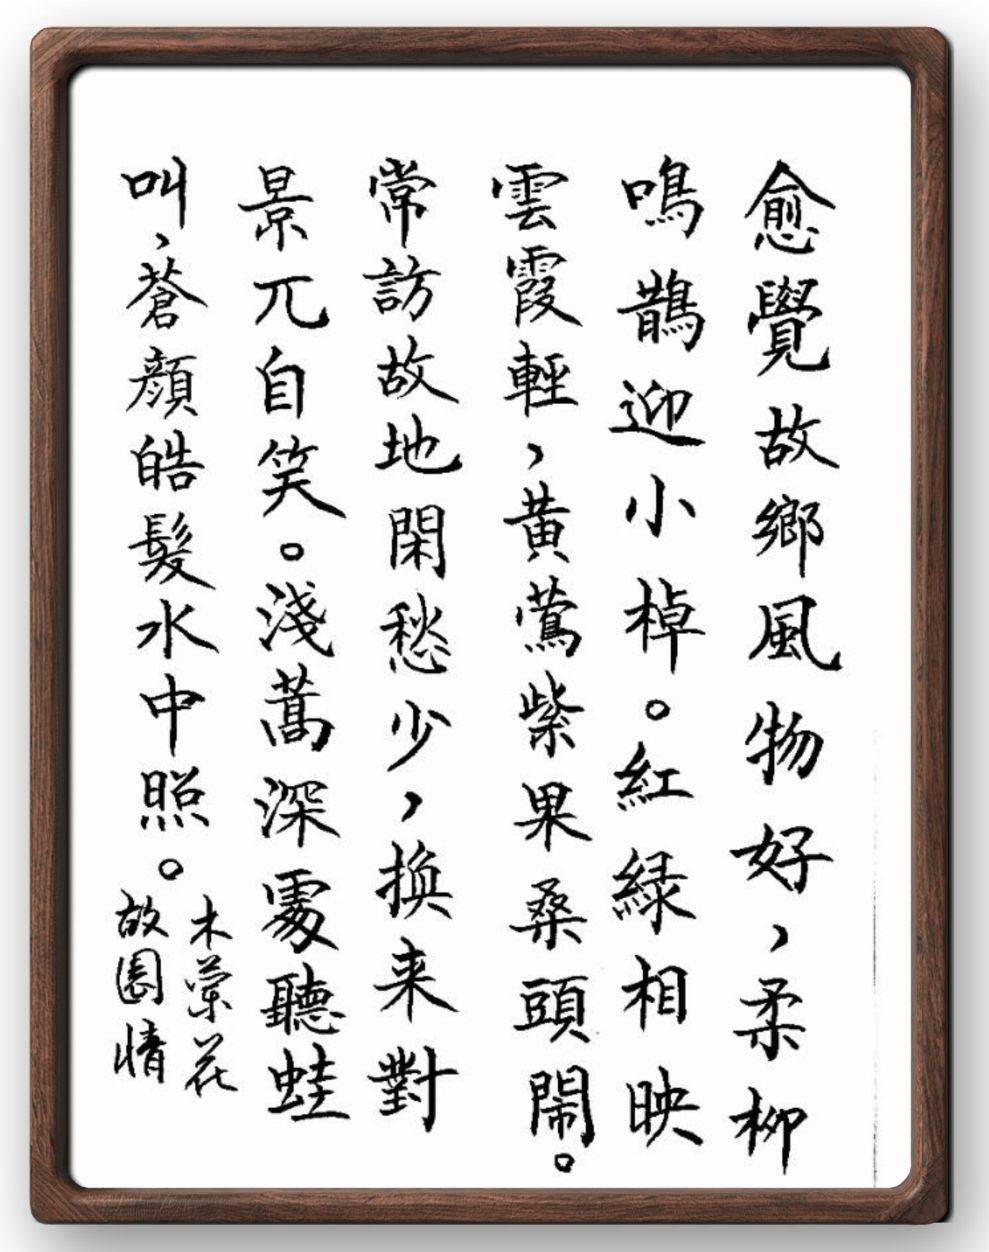 愈覺故鄉風物好，柔柳
鳴鵲迎小棹。紅緑相映
雲霞輕，黄鶯紫果桑頭鬧。
常訪故地閑愁少，換来對
景兀自笑。淺蒿深處聽蛙
叫，蒼顔皓髮水中照。
木蘭花
故園情